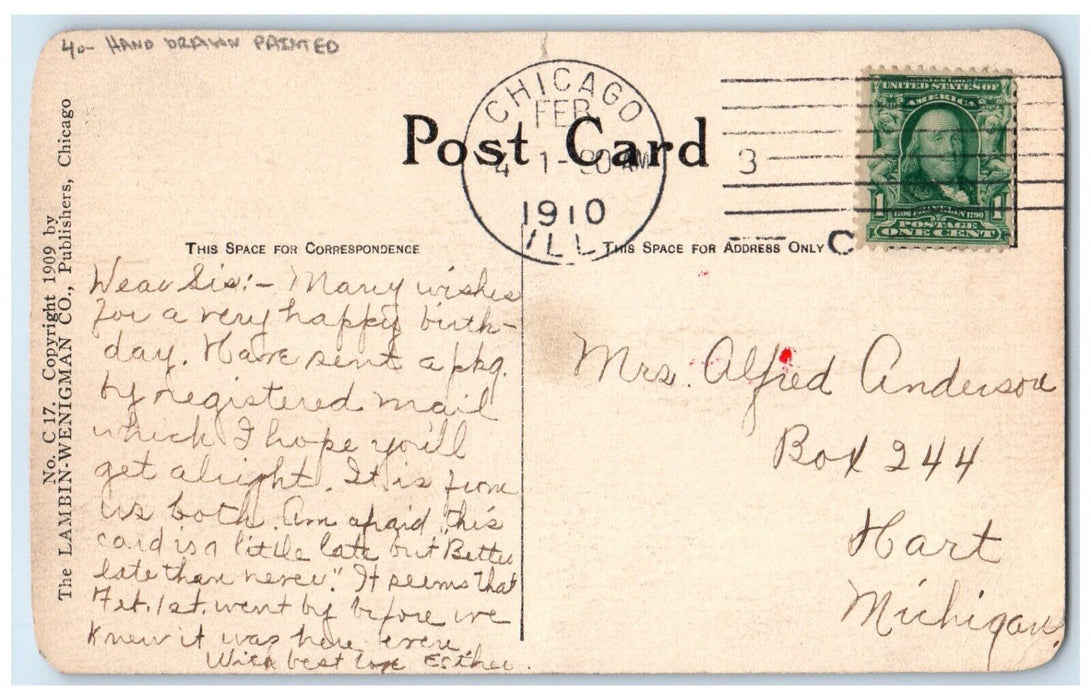 40- HAND DRAWN PAINTED
Post Card
CHICAGO
FEB
4 1-30 AM
1910
ILL
3
C
UNITED STATES OF
AMERICA
1 1706 FRANKLIN 1790 1
POSTAGE
ONE CENT
THIS SPACE FOR CORRESPONDENCE
THIS SPACE FOR ADDRESS ONLY
No. C 17. Copyright 1909 by
The LAMBIN-WENIGMAN CO., Publishers, Chicago
Dear Sis:- Many wishes
for a very happy birth-
day. Have sent a pkg.
by registered mail
which I hope you'll
get alright. It is from
us both. Am afraid this
card is a little late but "Better
late than never." It seems that
Feb. 1st. went by before we
knew it was here even.
With best love Esther.
Mrs. Alfred Anderson
Box 244
Hart
Michigan.